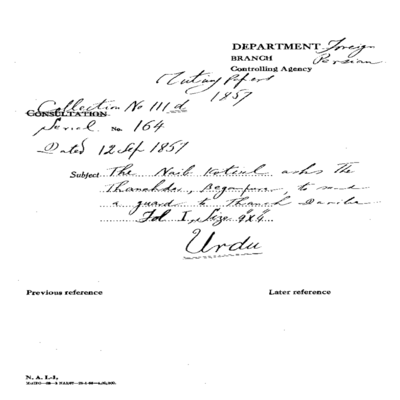 DEPARTMENT Foreign
BRANCH Persian
Controlling Agency
Mutiny Papers
1857
Collection No 111 d
CONSULTATION
Serial No. 164
Dated 12 Sep 1857
Subject The Naib Kotwal asks the
Thanahdar, to send
a guard to Thanah
Fol I, Size 9x4
Urdu
Previous reference Later reference
N. A. I.-1,